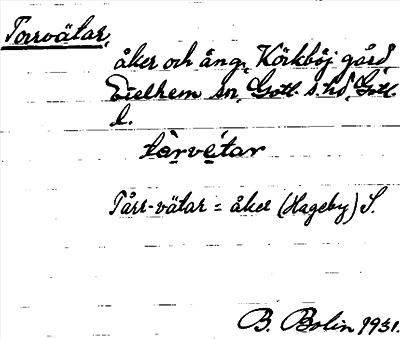 Torrvätar,
åker och äng, Körkböj gård
Eielhem sn, Gotl. s. hd, Gotl.
l.
tàrvétar
Tårr-vätar = åker (Hageby) S.
B. Bolin 1931.